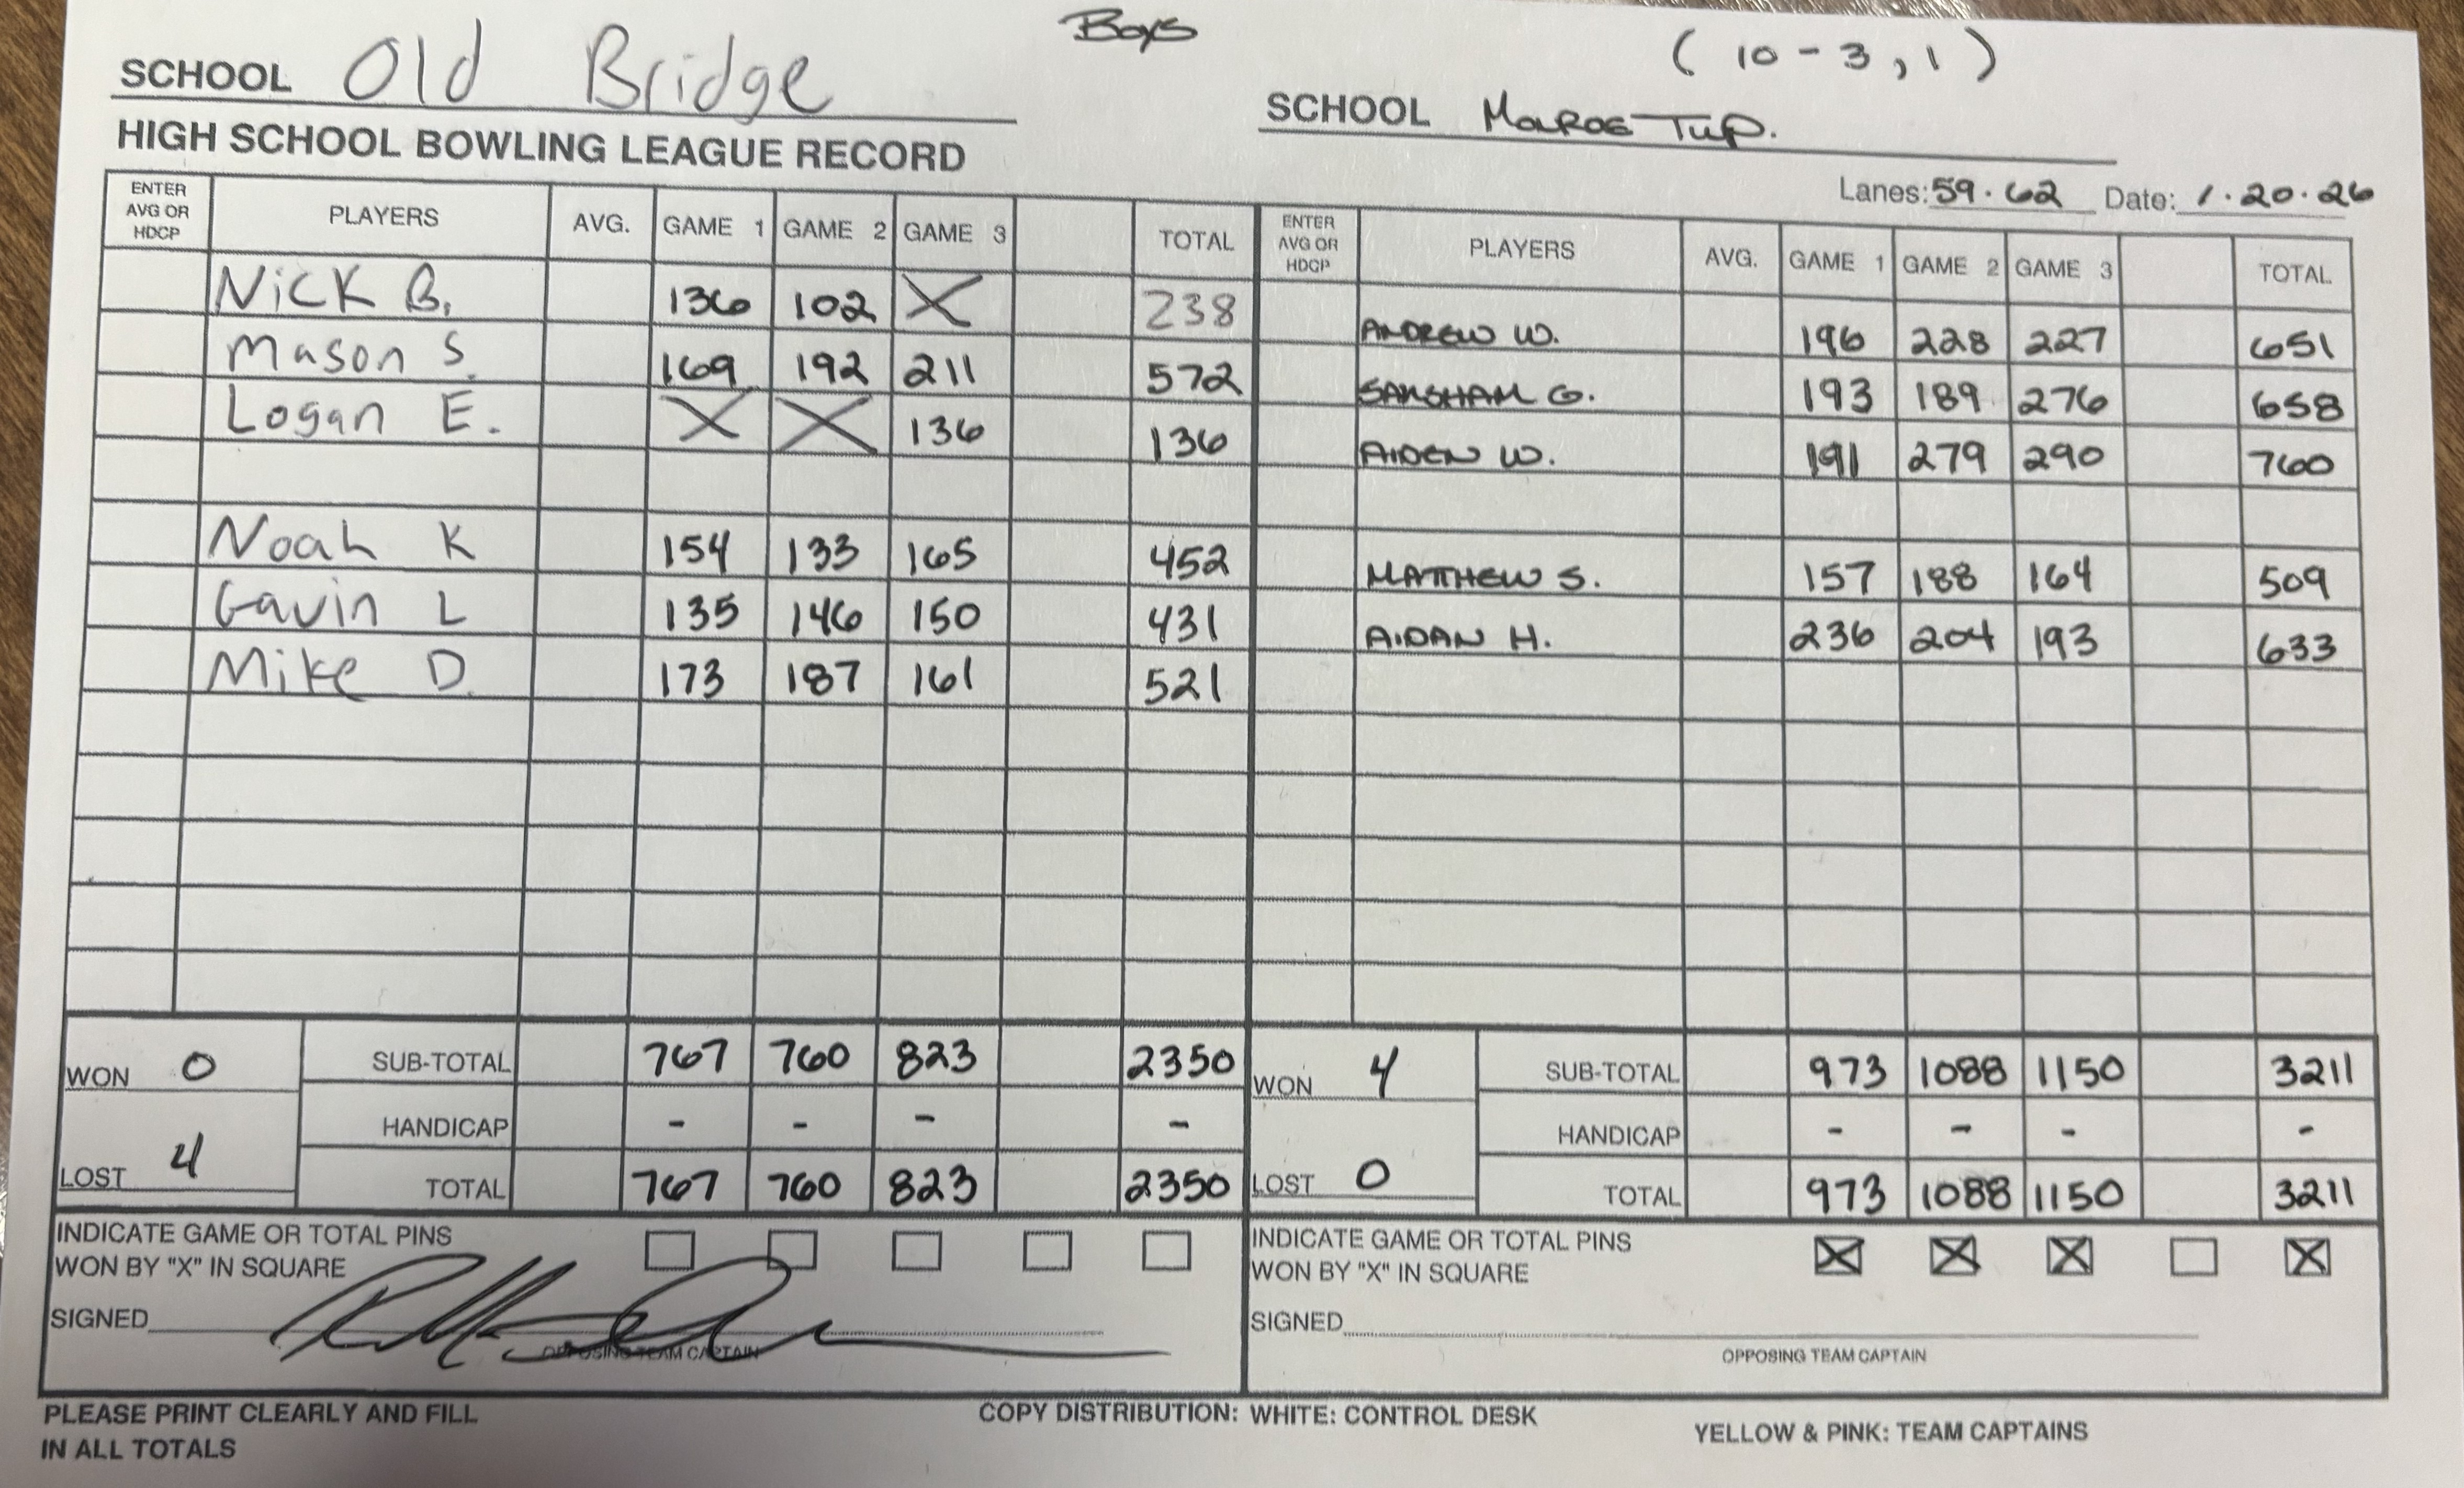 Boys
(10-3,1)
SCHOOL Old Bridge
SCHOOL Monroe Twp.
HIGH SCHOOL BOWLING LEAGUE RECORD
Lanes: 59.62 Date: 1.20.26
ENTER AVG OR HDCP PLAYERS AVG. GAME 1 GAME 2 GAME 3 TOTAL
Nick B. 136 102 X 238
Mason S. 169 192 211 572
Logan E. X X 136 136
Noah K 154 133 165 452
Gavin L 135 146 150 431
Mike D. 173 187 161 521
WON 0
LOST 4
SUB-TOTAL 767 760 823 2350
HANDICAP - - - -
TOTAL 767 760 823 2350
INDICATE GAME OR TOTAL PINS
WON BY "X" IN SQUARE
SIGNED
OPPOSING TEAM CAPTAIN
ENTER AVG OR HDCP PLAYERS AVG. GAME 1 GAME 2 GAME 3 TOTAL
ANDREW W. 196 228 227 651
SAKSHAM G. 193 189 276 658
AIDEN W. 191 279 290 760
MATTHEW S. 157 188 164 509
AIDAN H. 236 204 193 633
WON 4
LOST 0
SUB-TOTAL 973 1088 1150 3211
HANDICAP - - - -
TOTAL 973 1088 1150 3211
INDICATE GAME OR TOTAL PINS X X X X
WON BY "X" IN SQUARE
SIGNED
OPPOSING TEAM CAPTAIN
PLEASE PRINT CLEARLY AND FILL
IN ALL TOTALS
COPY DISTRIBUTION: WHITE: CONTROL DESK
YELLOW & PINK: TEAM CAPTAINS